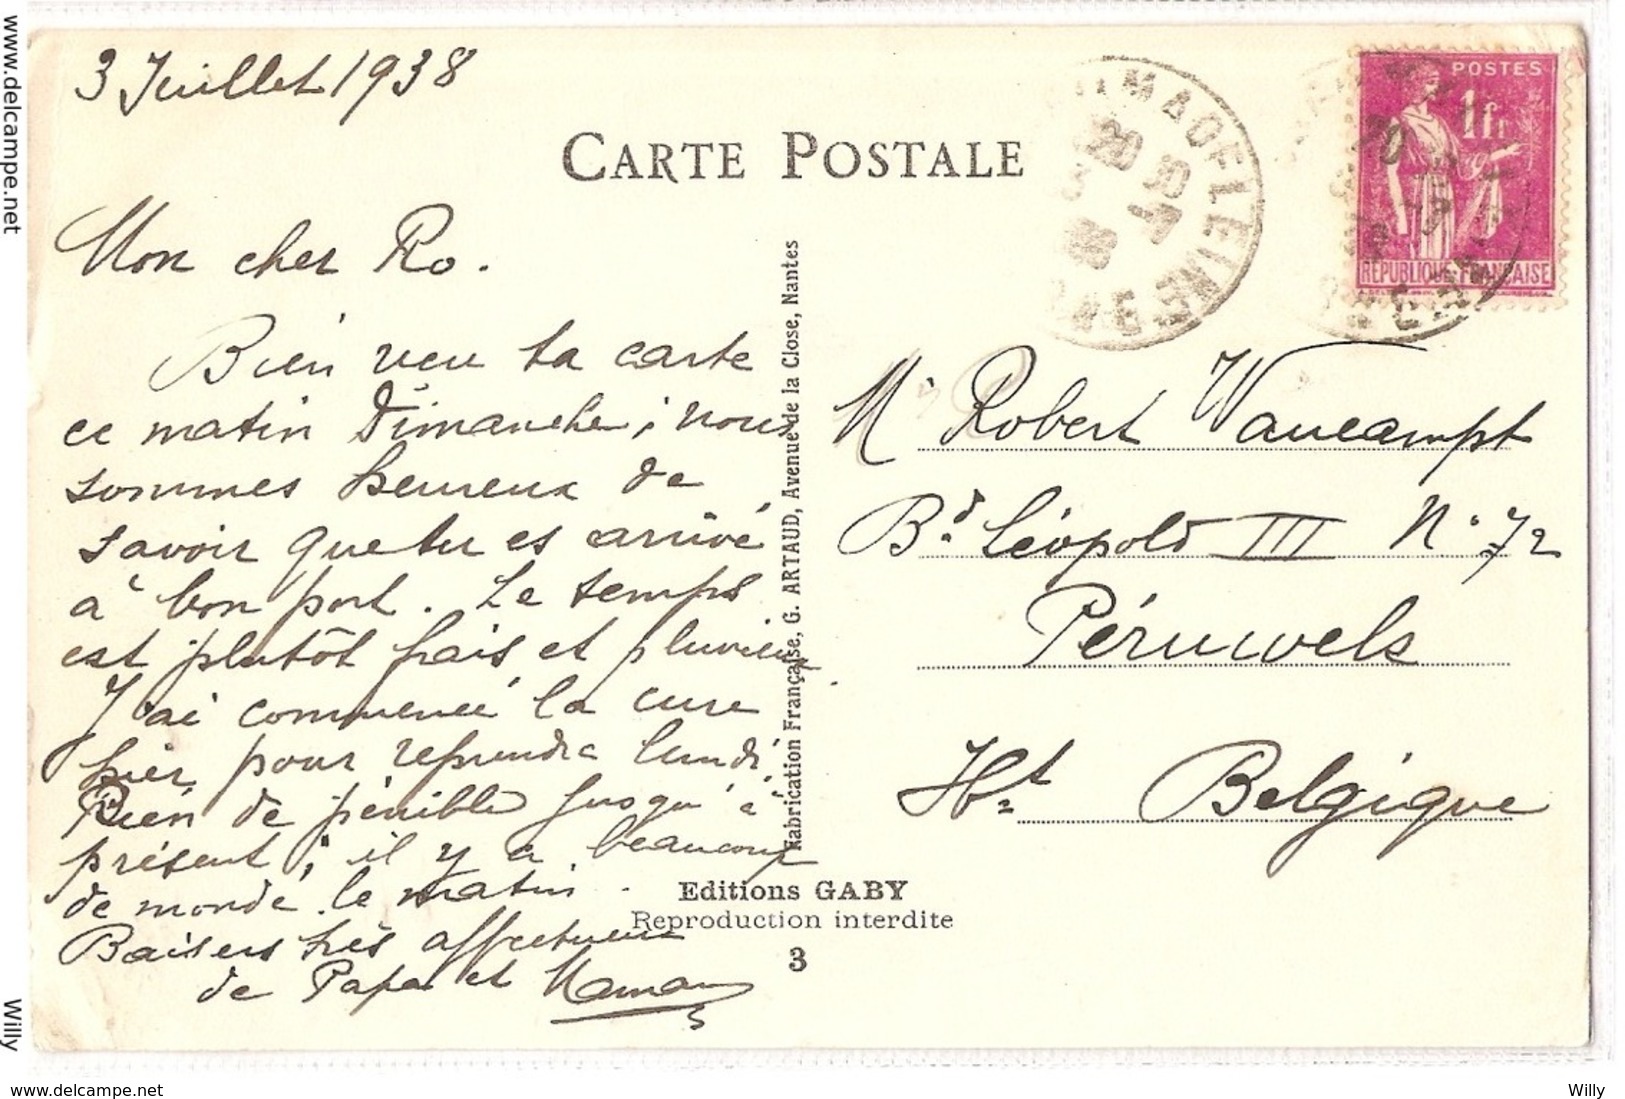 3 Juillet 1938
CARTE POSTALE
POSTES
1 fr
RÉPUBLIQUE FRANÇAISE
Mon cher Ro.
Bien reçu ta carte
ce matin Dimanche ; nous
sommes heureux de
savoir que tu es arrivé
à bon port. Le temps
est plutôt frais et pluvieux
J'ai commencé la cure
hier pour reprendre lundi.
Rien de pénible jusqu'à
présent ; il y a beaucoup
de monde le matin.
Baisers très affectueux
de Papa et Maman
Fabrication Française, G. ARTAUD, Avenue de la Close, Nantes
Mr Robert Vancampt
Bd Léopold III N° 72
Péruwels
Ht Belgique
Editions GABY
Reproduction interdite
3
www.delcampe.net
Willy
www.delcampe.net
Willy